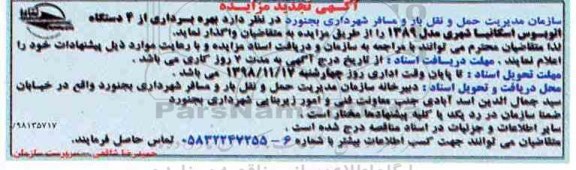 آگهی تجدید مزایده
سازمان مدیریت حمل و نقل بار و مسافر شهرداری بجنورد در نظر دارد بهره برداری از ۴ دستگاه
اتوبوس اسکانیا شهری مدل ۱۳۸۹ را از طریق مزایده به متقاضیان واگذار نماید.
لذا متقاضیان محترم می توانند با مراجعه به سازمان و دریافت اسناد مزایده و با رعایت موارد ذیل پیشنهادات خود را
اعلام نمایند . مهلت دریافت اسناد : از تاریخ درج آگهی به مدت ۷ روز کاری می باشد .
مهلت تحویل اسناد : تا پایان وقت اداری روز چهارشنبه ۱۳۹۸/۱۱/۱۷ می باشد .
محل دریافت و تحویل اسناد : دبیرخانه سازمان مدیریت حمل و نقل بار و مسافر شهرداری بجنورد واقع در خیابان
سید جمال الدین اسد آبادی جنب معاونت فنی و امور زیربنایی شهرداری بجنورد
ضمنا سازمان در رد یک یا کلیه پیشنهادها مختار است .
سایر اطلاعات و جزئیات در اسناد مناقصه درج شده است .
متقاضیان می توانند جهت کسب اطلاعات بیشتر با شماره ۶ – ۰۵۸۳۲۲۴۷۲۵۵ تماس حاصل فرمایند.
۹۸۱۳۵۷۱۷/
حمیدرضا شافعی – سرپرست سازمان